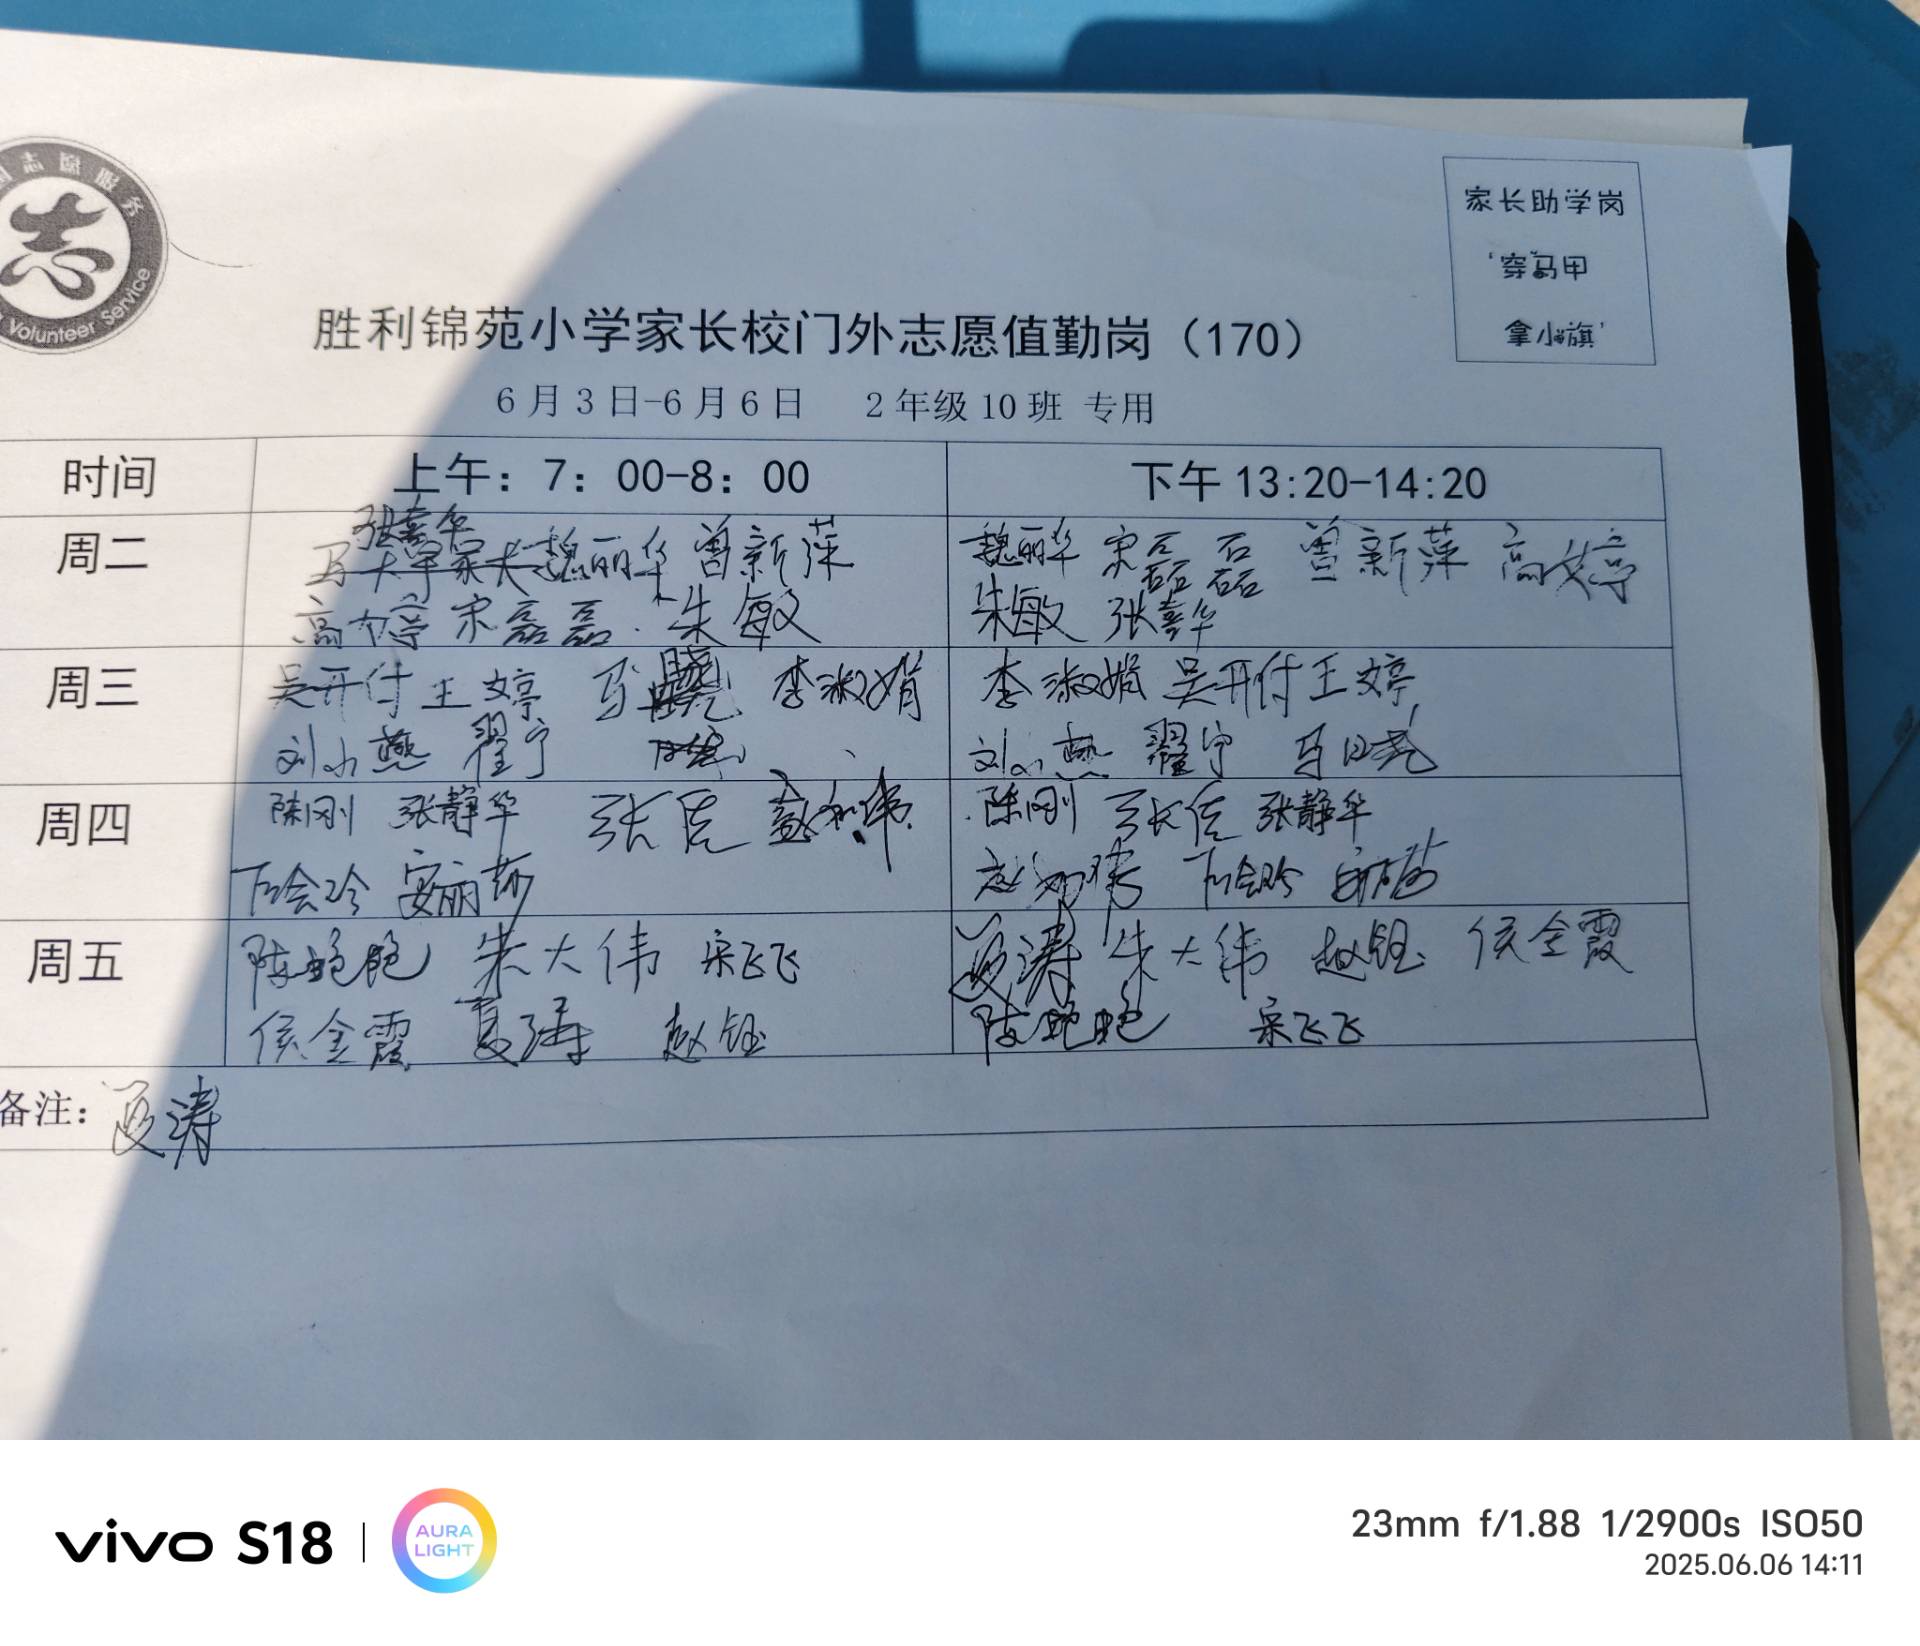 志愿服务
志
Volunteer Service
家长助学岗
'穿马甲
拿小旗'
胜利锦苑小学家长校门外志愿值勤岗（170）
6月3日-6月6日 2年级10班 专用
时间 上午：7：00-8：00 下午 13:20-14:20
周二
张喜华
魏丽华 曾新萍
高婷 宋磊磊 朱敏
魏丽华 宋磊磊 曾新萍 高文婷
朱敏 张喜华
周三
吴开付 王婷 马晓 李淑娟
刘小燕 翟宁
李淑娟 吴开付 王婷
刘小燕 翟宁 马晓
周四
陈刚 张静华 张信 赵利伟
卞会玲 安丽莎
陈刚 张信 张静华
赵利伟 卞会玲 安丽莎
周五
陈艳艳 朱大伟 宋飞飞
侯金霞 夏涛 赵钰
夏涛 朱大伟 赵钰 侯金霞
陈艳艳 宋飞飞
备注：夏涛
vivo S18
AURA LIGHT
23mm f/1.88 1/2900s ISO50
2025.06.06 14:11